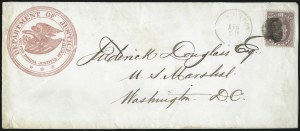 DEPARTMENT OF JUSTICE
Frederick Douglass Esq.
U.S. Marshal.
Washington, D.C.